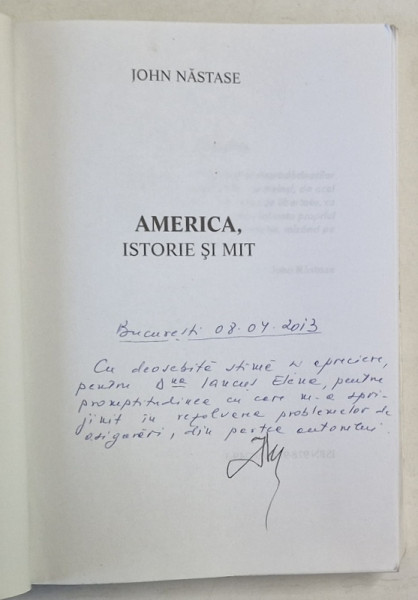 JOHN NĂSTASE
AMERICA,
ISTORIE ŞI MIT
Bucureşti 08.04.2013
Cu deosebită stimă şi apreciere,
pentru Dna Iancus Elena, pentru
promptitudinea cu care m-a spri-
jinit în rezolvarea problemelor de
asigurări, din partea autorului.